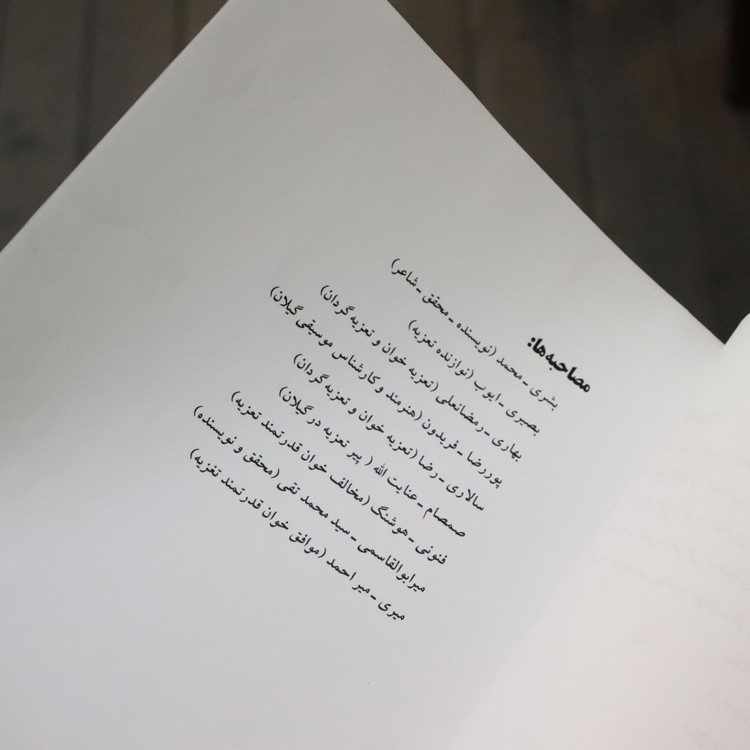 مصاحبه‌ها:
بشری - محمد (نویسنده - محقق - شاعر)
بصیری - ایوب (نوازنده تعزیه)
بهاری - رمضانعلی (تعزیه خوان و تعزیه گردان)
پوررضا - فریدون (هنرمند و کارشناس موسیقی گیلان)
سالاری - رضا (تعزیه خوان و تعزیه گردان)
صمصام - عنایت الله ( پیر تعزیه در گیلان)
فنونی - هوشنگ (مخالف خوان قدرتمند تعزیه)
میرابوالقاسمی - سید محمد تقی (محقق و نویسنده)
میری - میر احمد (موافق خوان قدرتمند تغزیه)